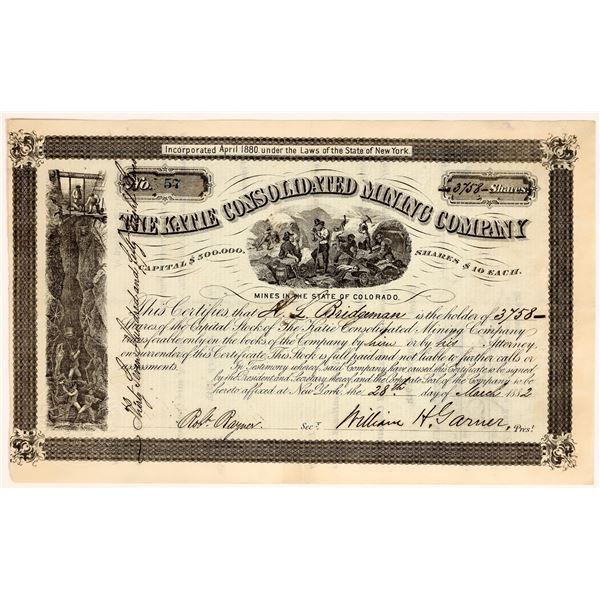 Incorporated April 1880. under the Laws of the State of New York.
No. 57
3758 Shares
THE KATIE CONSOLIDATED MINING COMPANY
CAPITAL $500.000.
SHARES $10 EACH.
MINES IN THE STATE OF COLORADO.
This Certifies that H. L. Bridgman is the holder of 3758
Shares of the Capital Stock of The Katie Consolidated Mining Company
Transferable only on the books of the Company by him or by his Attorney,
on surrender of this Certificate. This Stock is full paid and not liable to further calls or
assessments.
In Testimony whereof said Company have caused this Certificate to be signed
by the President and Secretary thereof, and the Corporate Seal of the Company to be
hereto affixed at New York, the 28th day of March 1882
Robt. Rayner Secy.
William H. Garner, Prest.
Thirty Seven hundred and fifty eight